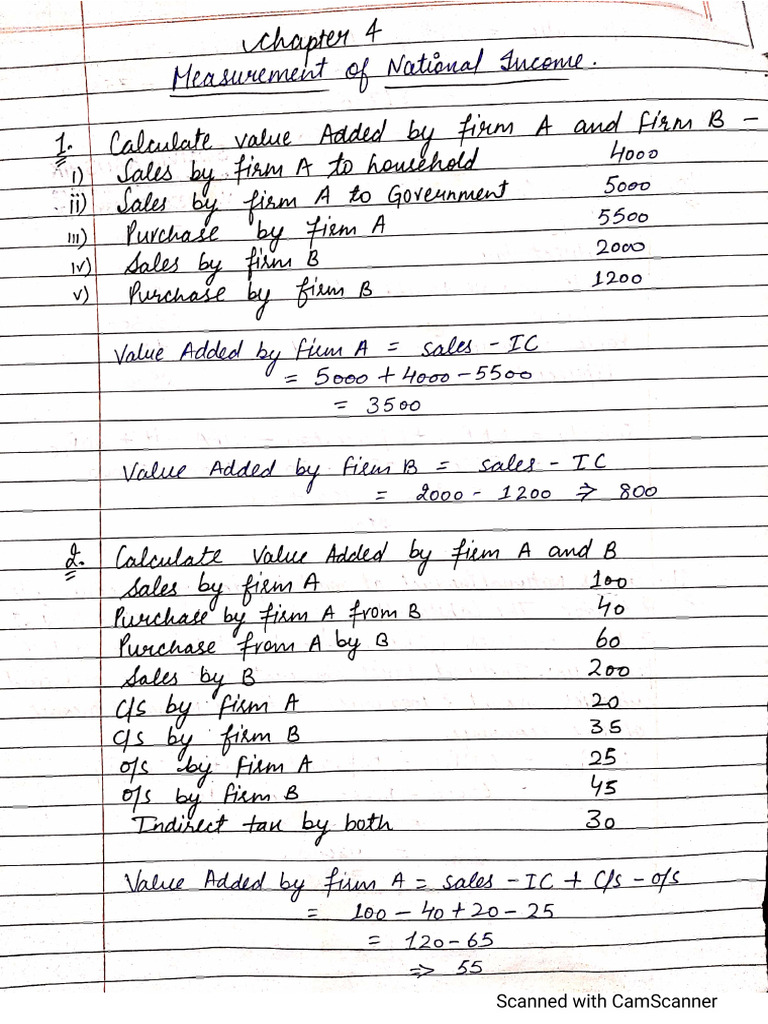 Chapter 4
Measurement of National Income.
1. Calculate value Added by firm A and firm B -
i) Sales by firm A to household 4000
ii) Sales by firm A to Government 5000
iii) Purchase by firm A 5500
iv) Sales by firm B 2000
v) Purchase by firm B 1200
Value Added by firm A = sales - IC
= 5000 + 4000 - 5500
= 3500
Value Added by firm B = sales - IC
= 2000 - 1200 ⇒ 800
2. Calculate Value Added by firm A and B
Sales by firm A 100
Purchase by firm A from B 40
Purchase from A by B 60
Sales by B 200
C/S by firm A 20
C/S by firm B 35
O/S by firm A 25
O/S by firm B 45
Indirect tax by both 30
Value Added by firm A = sales - IC + C/S - O/S
= 100 - 40 + 20 - 25
= 120 - 65
⇒ 55
Scanned with CamScanner